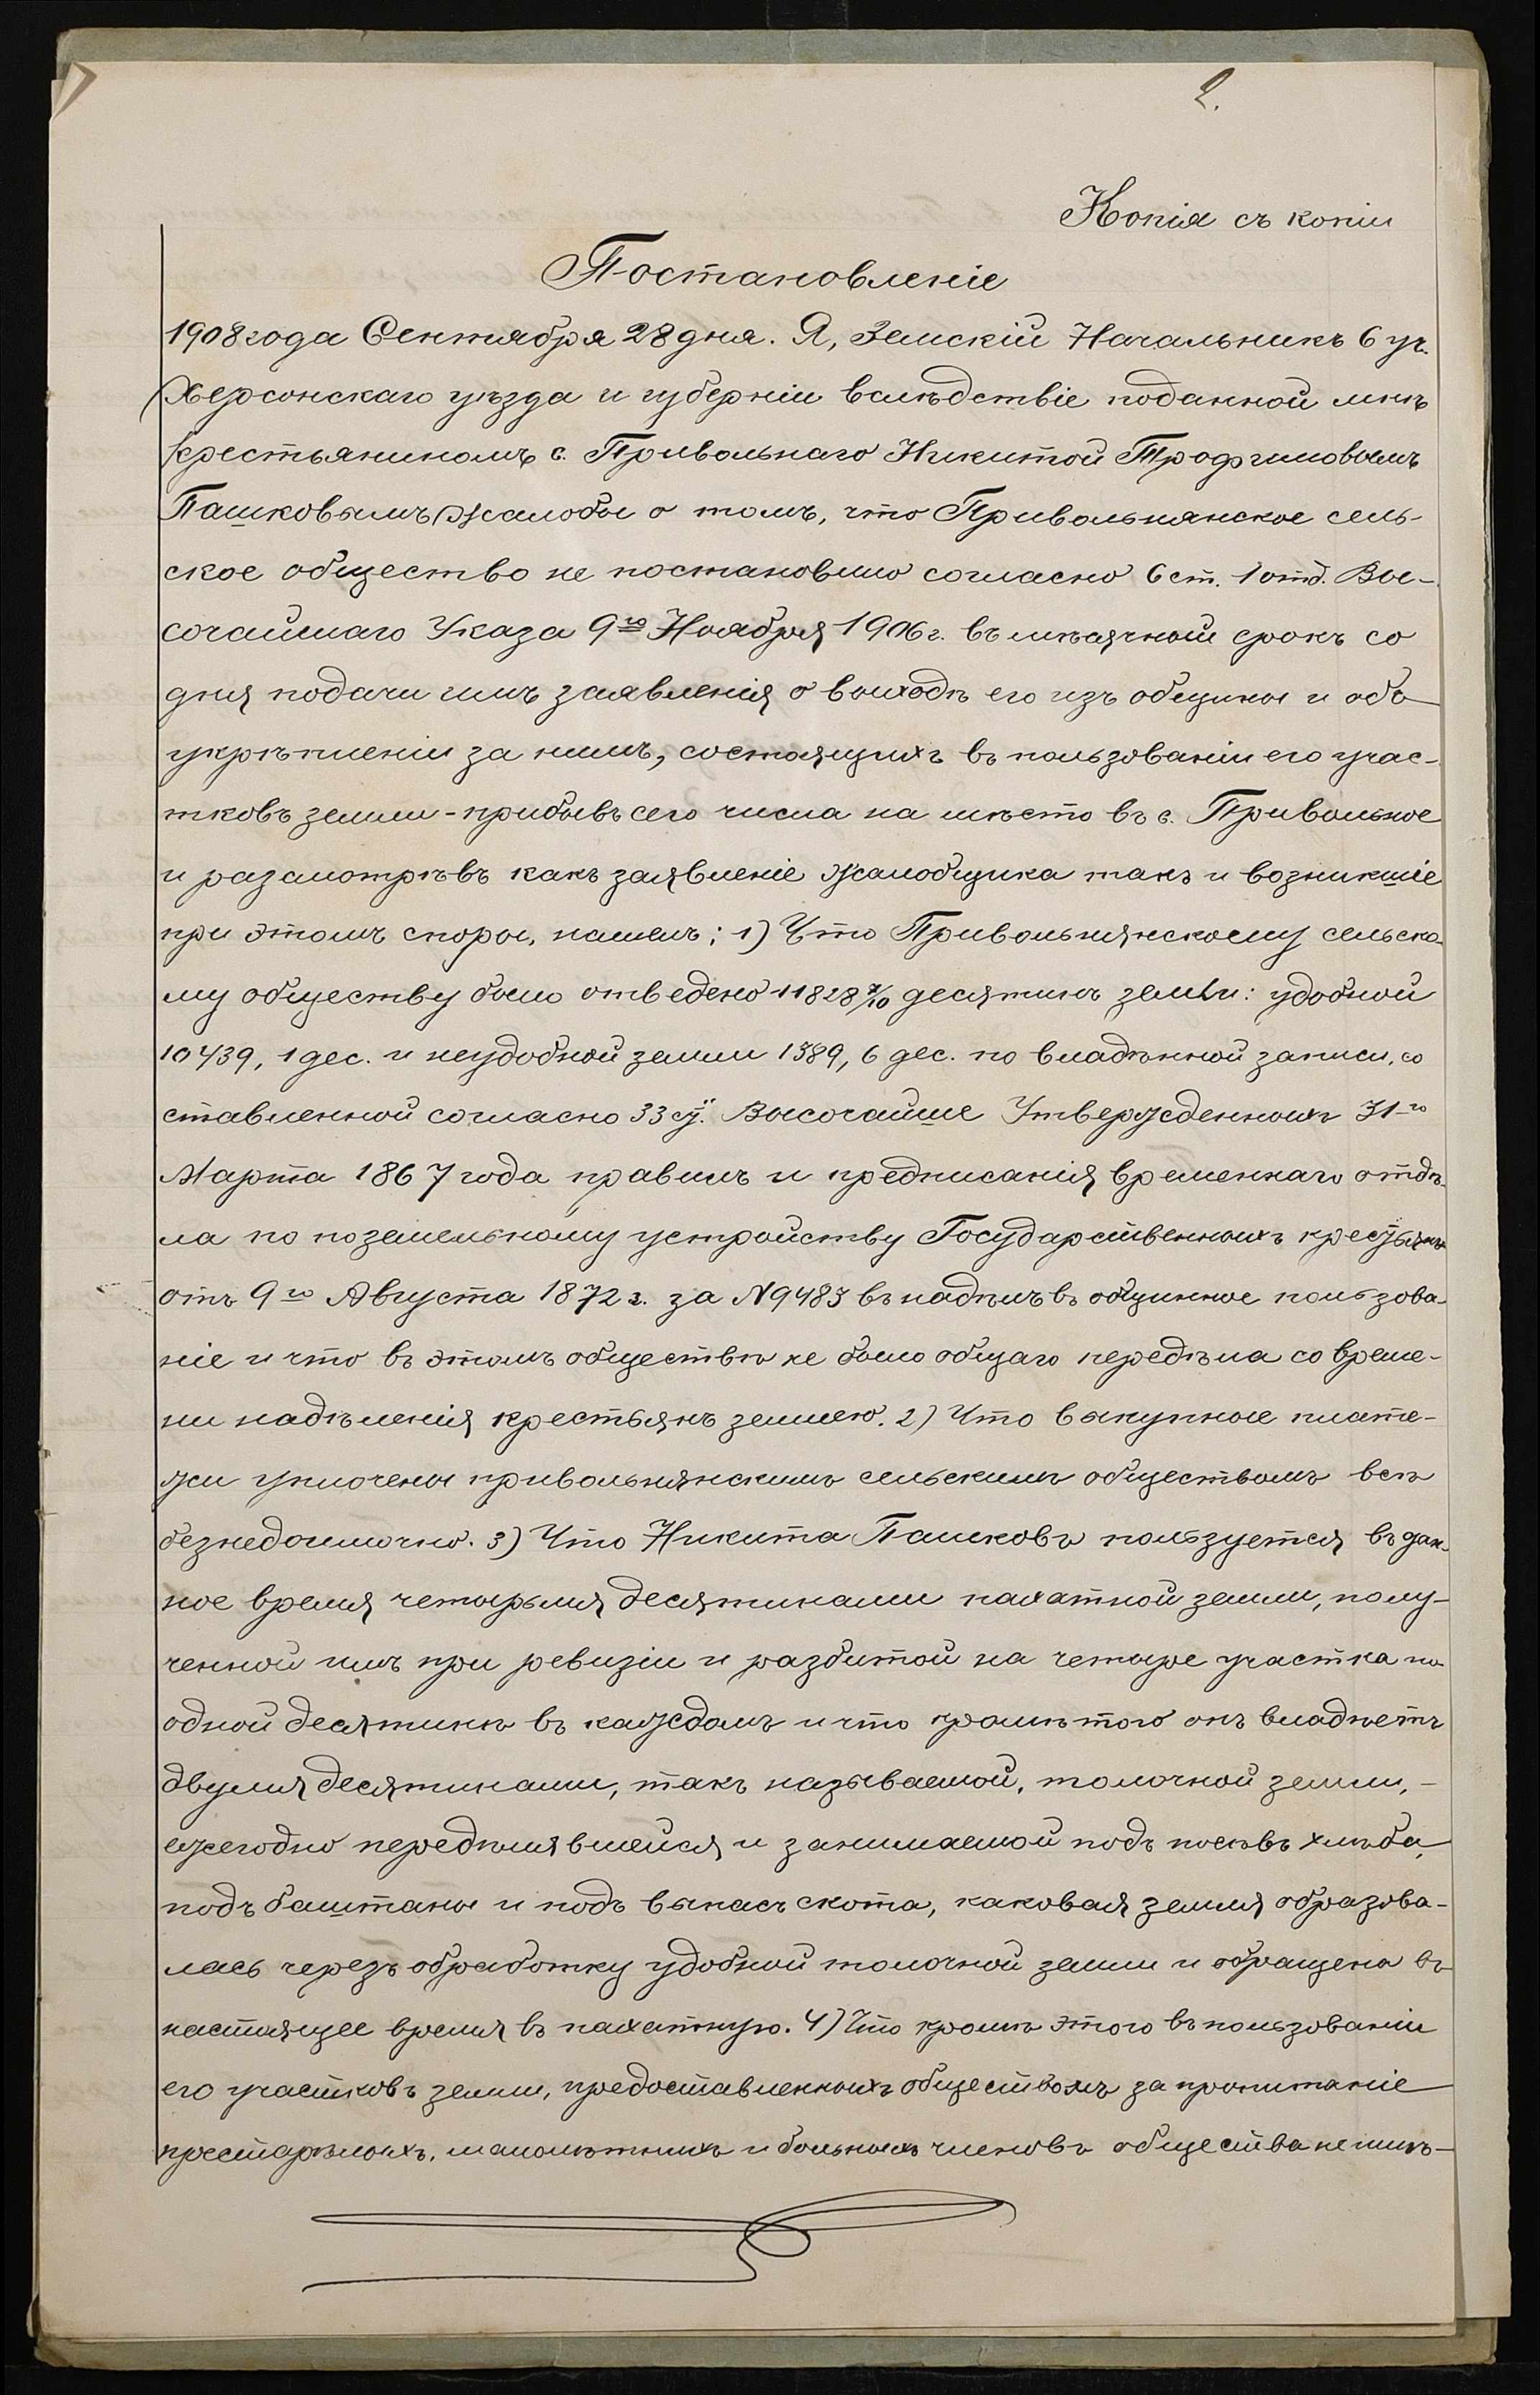 2.
Копія съ копіи
Постановленіе
1908 года Сентября 28 дня. Я, Земскій Начальникъ 6 уч.
Херсонскаго уѣзда и губерніи вслѣдствіе поданной мнѣ
крестьяниномъ с. Привольнаго Никитой Трофимовымъ
Пашковымъ жалобы о томъ, что Привольнянское сель-
ское общество не постановило согласно 6 ст. 1 отд. Вы-
сочайшаго Указа 9го Ноября 1906 г. въ мѣсячный срокъ со
дня подачи имъ заявленія о выходѣ его изъ общины и объ
укрѣпленіи за нимъ, состоящихъ въ пользованіи его учас-
тковъ земли - прибывъ сего числа на мѣсто въ с. Привольное
и разсмотрѣвъ какъ заявленіе жалобщика такъ и возникшіе
при этомъ споры, нашелъ: 1) Что Привольнянскому сельско-
му обществу было отведено 11828 7/10 десятинъ земли: удобной
10439, 1 дес. и неудобной земли 1389, 6 дес. по владѣнной записи, со
ставленной согласно 33 ст. Высочайше Утвержденныхъ 31-го
Марта 1867 года правилъ и предписанія временнаго отдѣ-
ла по поземельному устройству Государственныхъ крестьянъ
отъ 9го Августа 1872 г. за № 9483 въ надѣлъ въ общинное пользова-
ніе и что въ этомъ обществѣ не было общаго передѣла со време-
ни надѣленія крестьянъ землею. 2) Что выкупные плате-
жи уплочены привольнянскимъ сельскимъ обществомъ всѣ
безнедоимочно. 3) Что Никита Пашковъ пользуется въ дан-
ное время четырьмя десятинами пахатной земли, полу-
ченной имъ при ревизіи и разбитой на четыре участка по
одной десятинѣ въ каждомъ и что кромѣ того онъ владѣетъ
двумя десятинами, такъ называемой, толочной земли, -
ежегодно передѣлявшейся и занимаемой подъ посѣвъ хлѣба,
подъ баштаны и подъ выпасъ скота, каковая земля образова-
лась черезъ обработку удобной толочной земли и обращена въ
настоящее время въ пахатную. 4) Что кромѣ этого въ пользованіи
его участковъ земли, предоставленныхъ обществомъ за пропитаніе
престарѣлыхъ, малолѣтнихъ и больныхъ членовъ общества не имѣ-